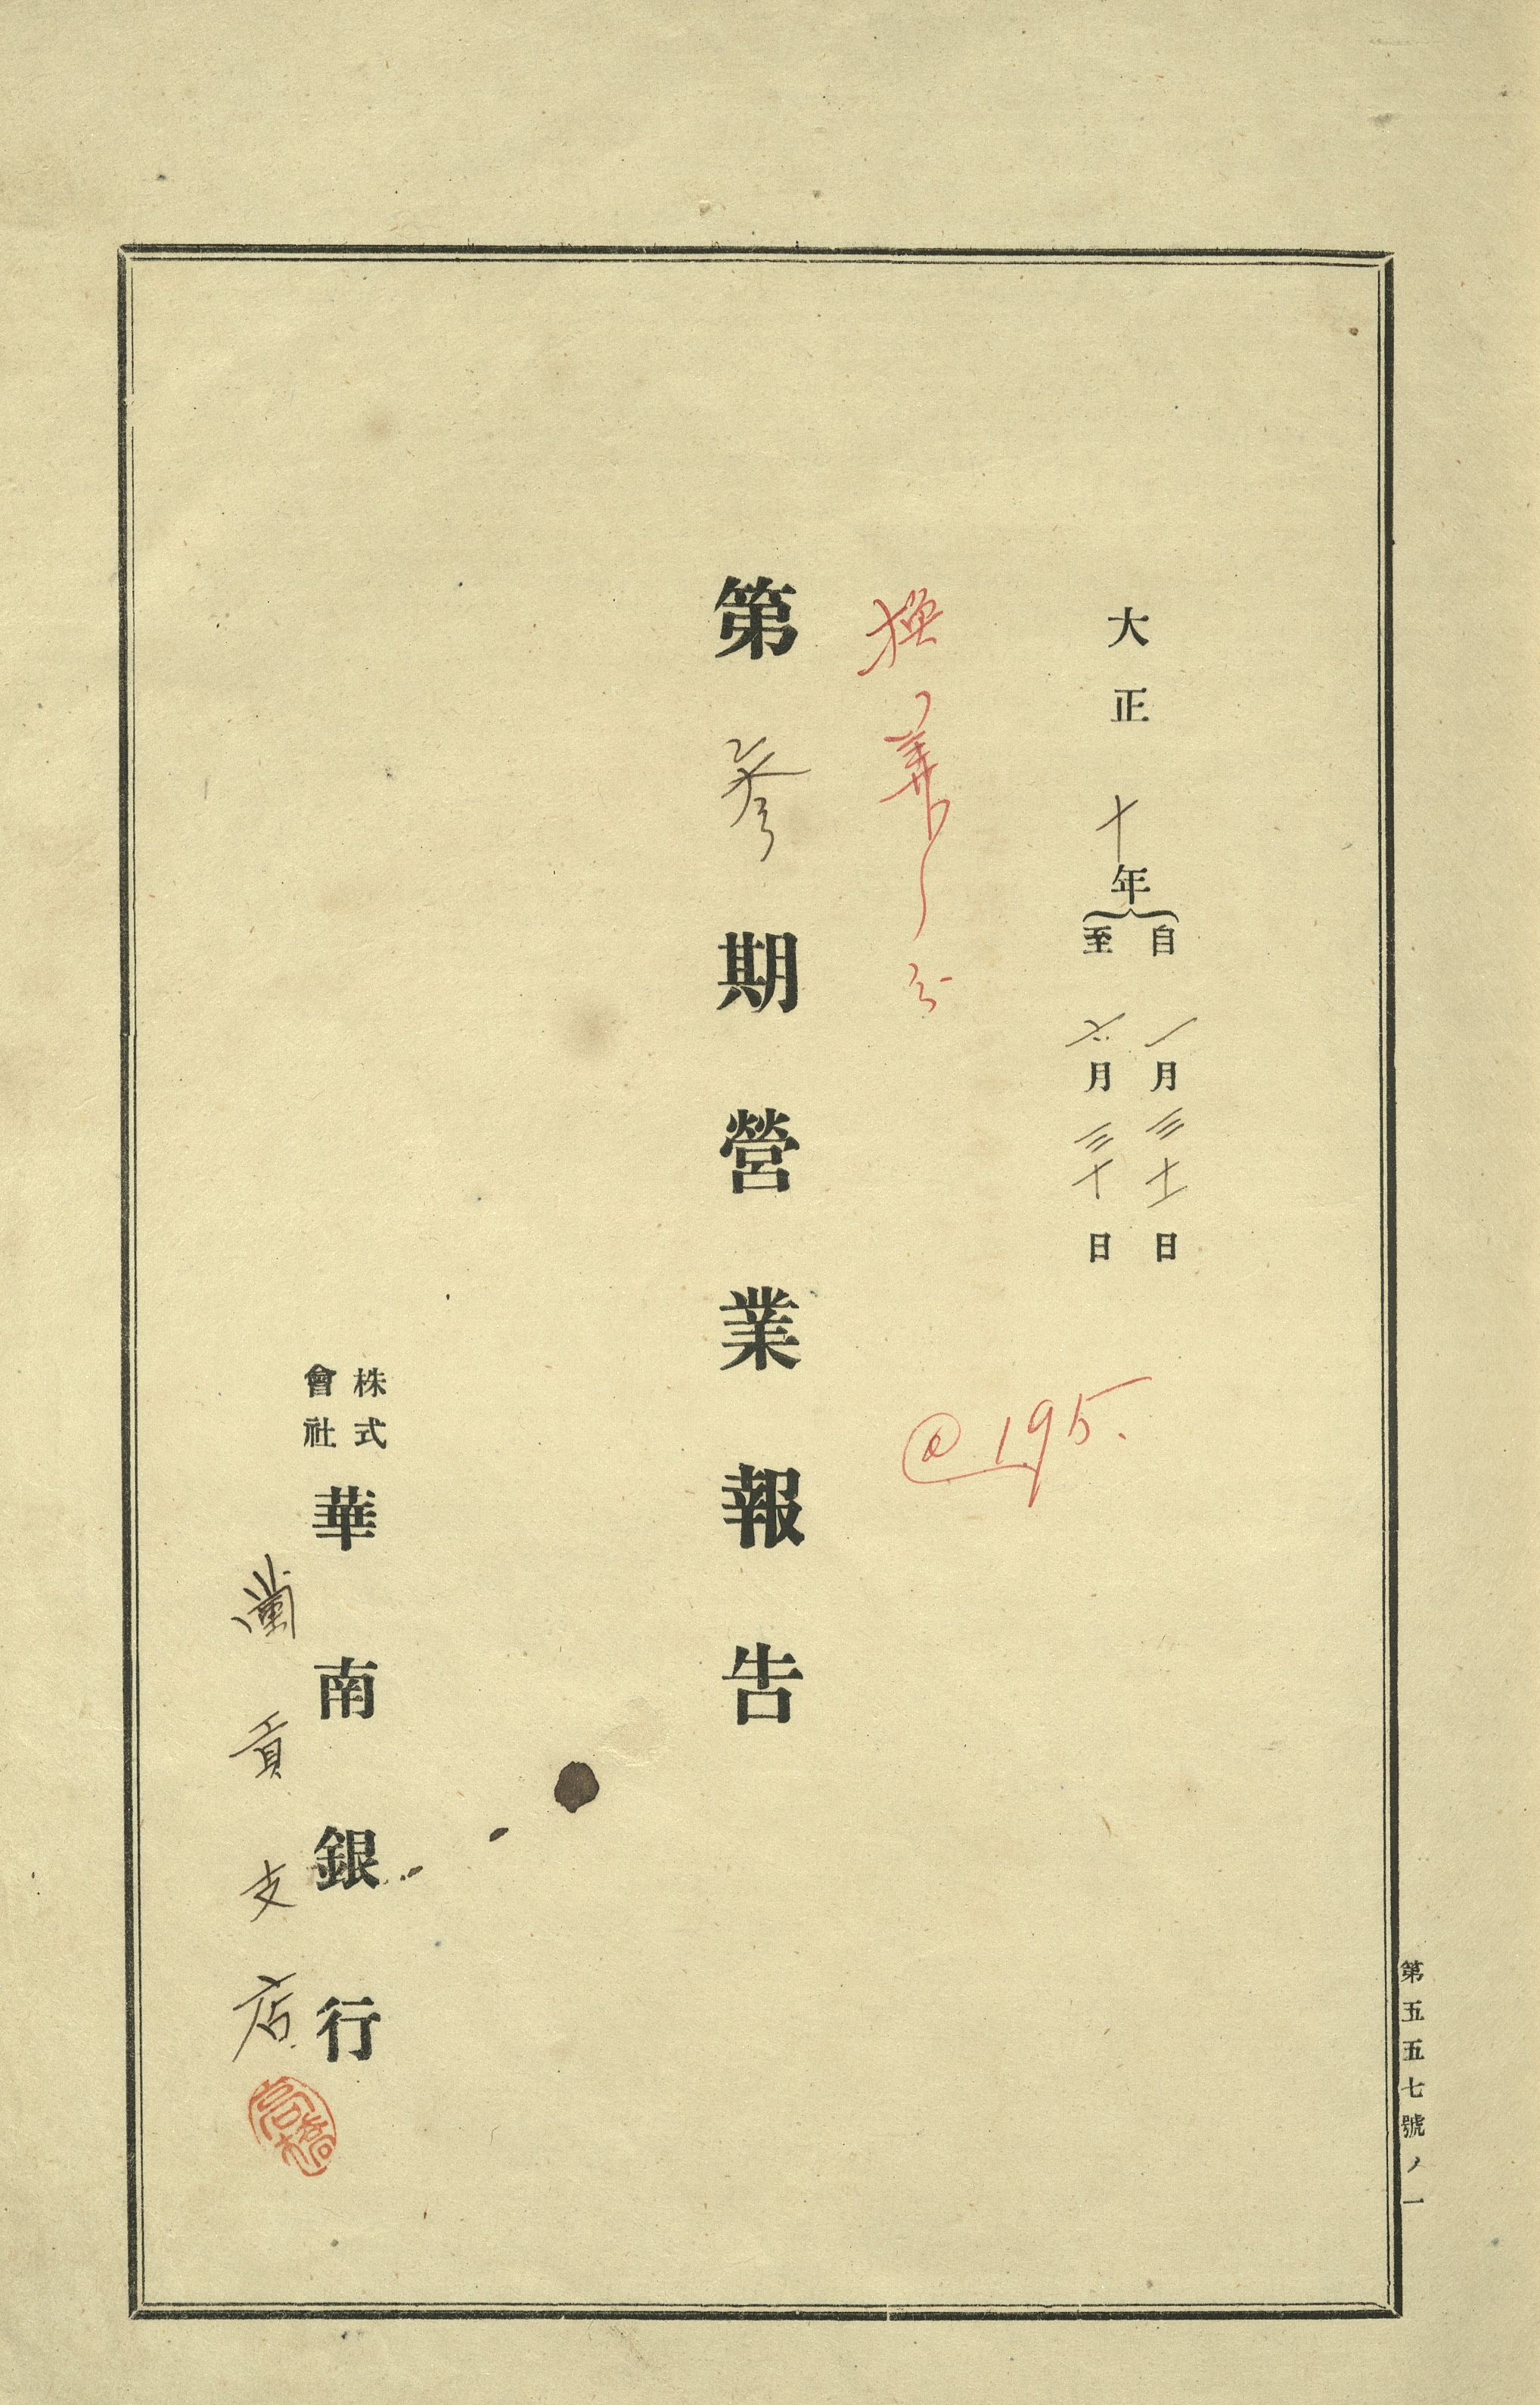 第五五七號ノ一
大正十年
自一月三十一日
至六月三十日
@195.
第参期營業報告
株式會社華南銀行
蘭貢支店